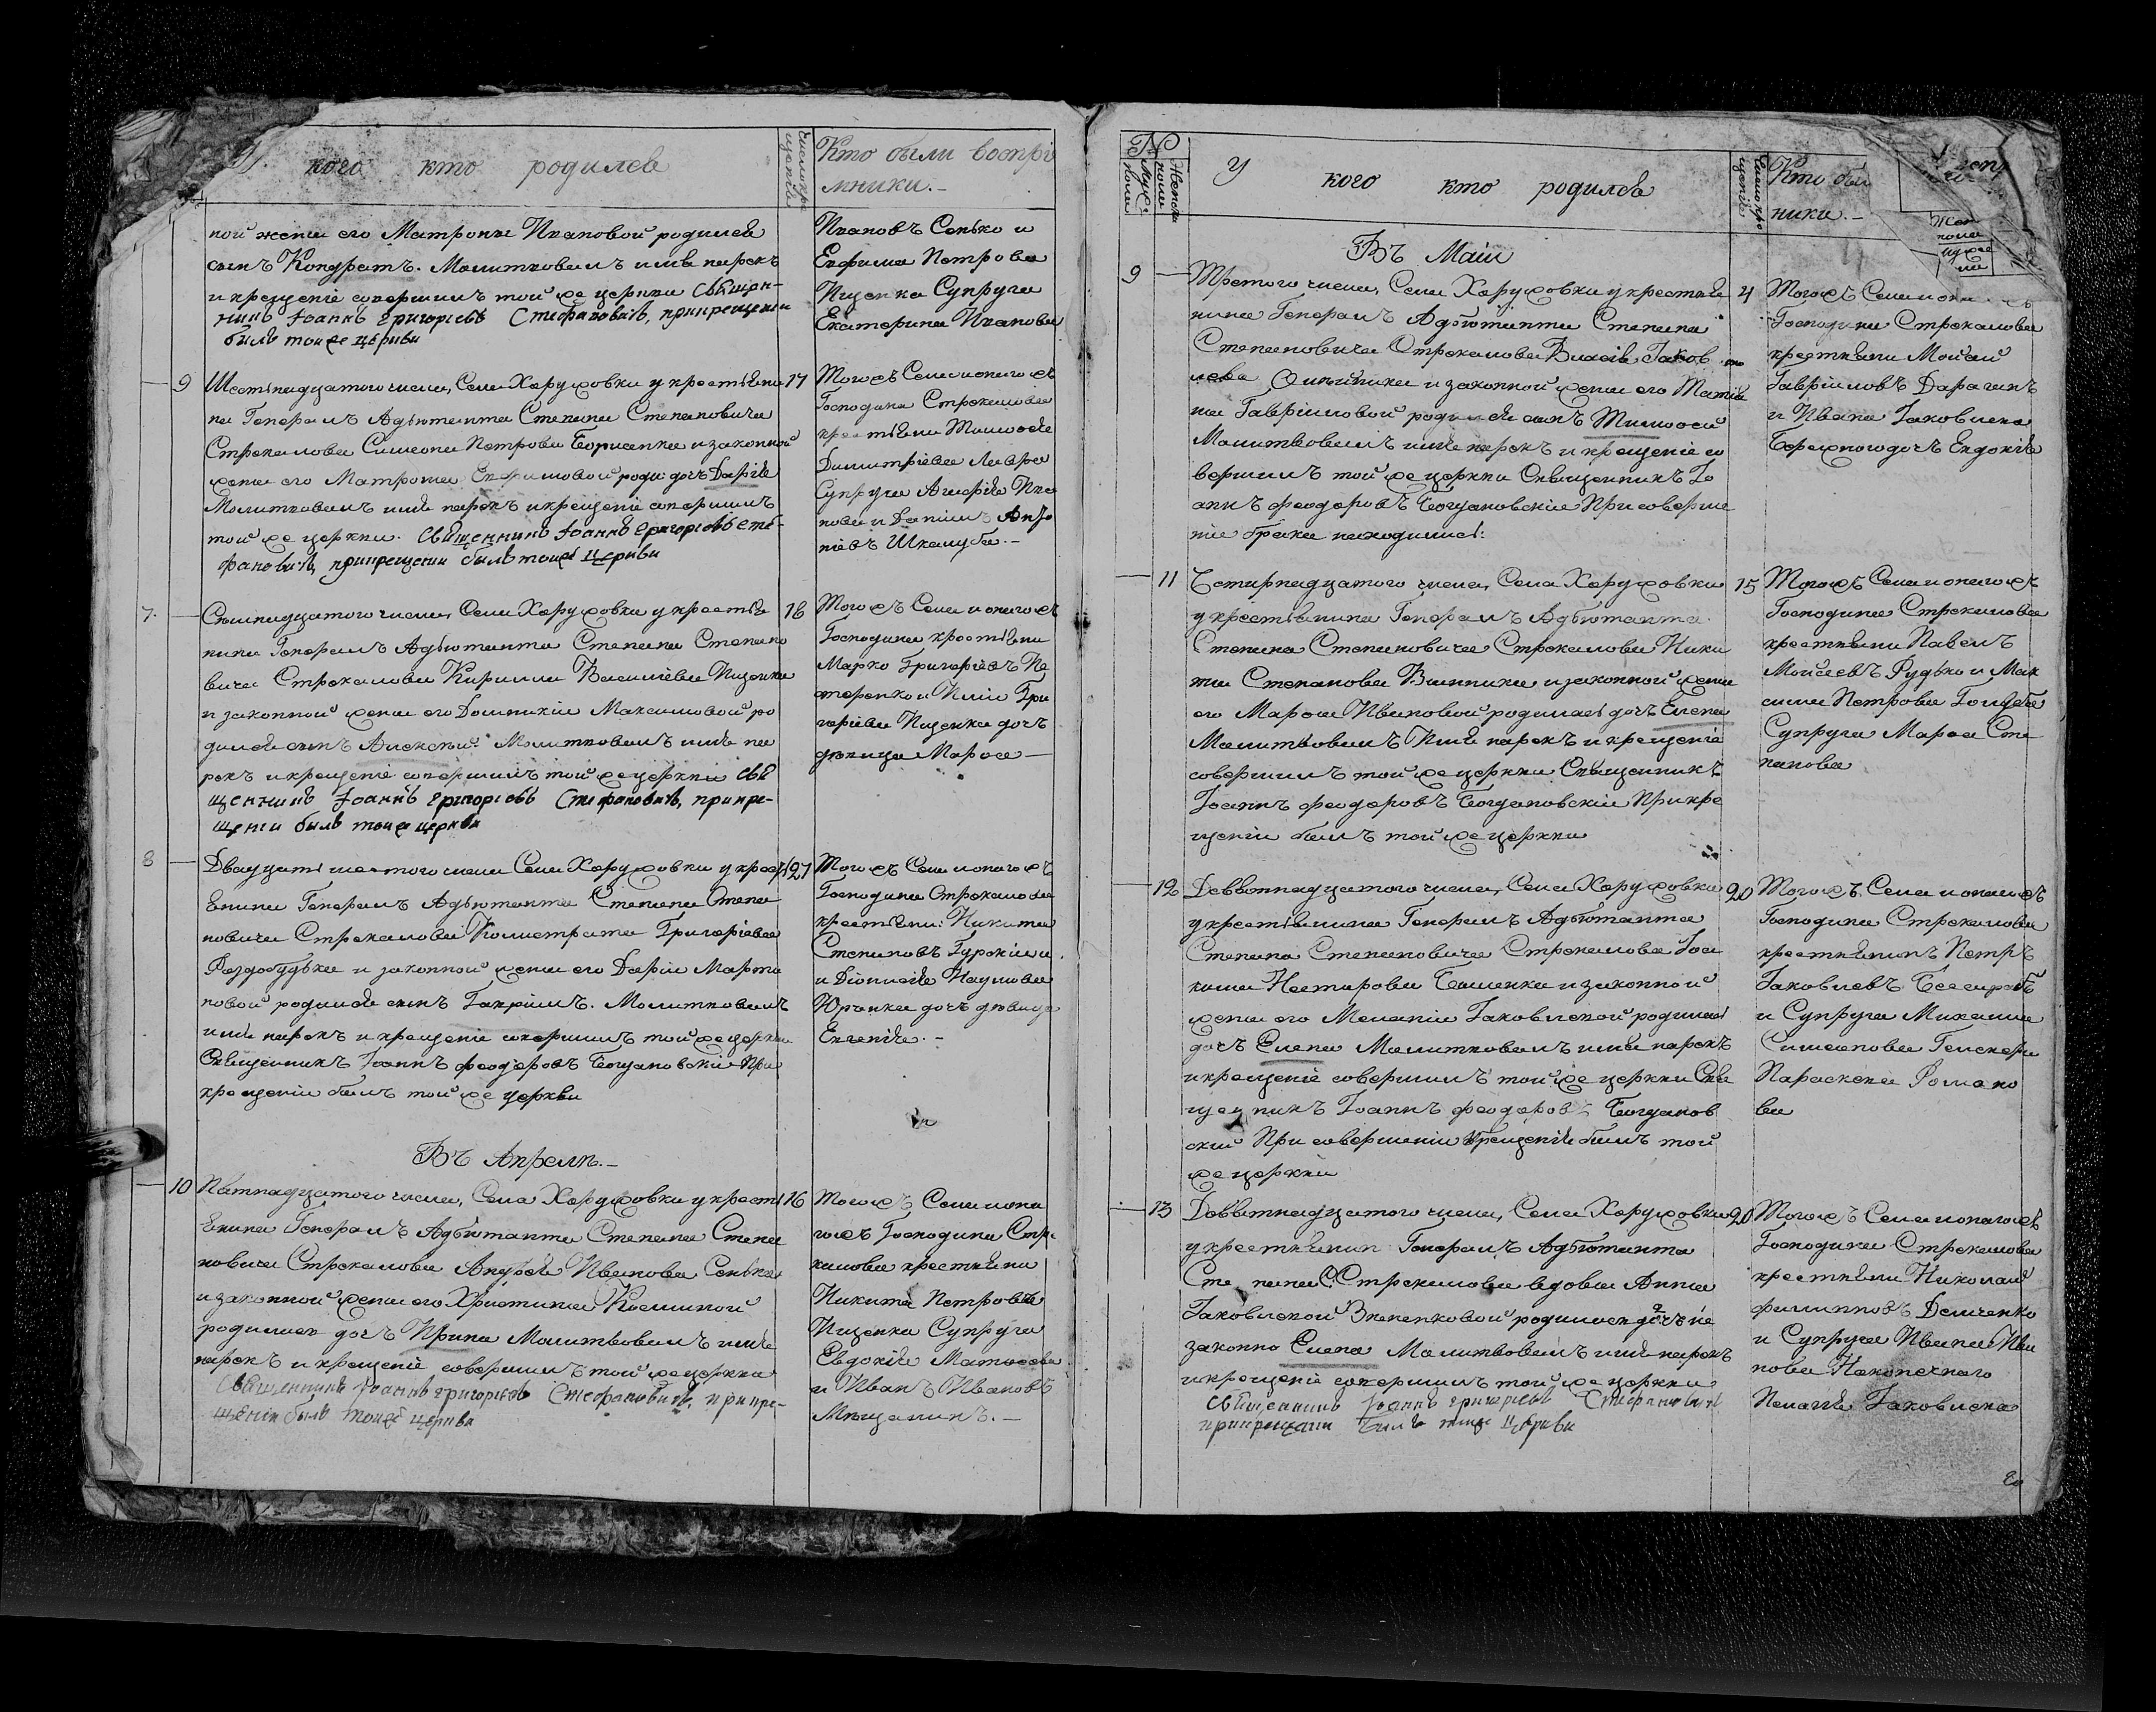 У кого кто родился
Число крещенія
Кто были воспрі
мники.-
ной жены его Матроны Ивановой родился
сынъ Кондратъ. Молитвовалъ имя нарекъ
и крещеніе совершилъ той же церкви Священ-
никъ Іоаннъ Григорьевъ Стефановичъ, прикрещеніи
былъ тоиже церкви
Ивановъ Сенько и
Ефима Петрова
Ищенка Супруга
Екатерина Иванова
9 Шестнадцатого числа, Села Харужовки у крестьяни 17
на Генералъ Адъютанта Степана Степановича
Стрекалова Симеона Петрова Борисенка и законной
жены его Матроны Ефимовой роди дочь Дарія
Молитвовалъ имя нарекъ и крещеніе совершилъ
той же церкви. Священникъ Іоаннъ Григорьевъ Сте-
фановичъ, прикрещеніи былъ тоиже церкви
Тогожъ Села и оногожъ
Господина Стрекалова
крестьяни Тимофея
Димитріева Лавра
Супруга Агафія Ива
нова и Даніилъ Анто
ніевъ Шкалуба.-
7. Семнадцатого числа, Села Харужовки у крестья 18
нина Генералъ Адъютанта Степана Степано
вича Стрекалова Кирилла Васильева Ищенка
и законной жены его Домникіи Максимовой ро
дился сынъ Алексей. Молитвовалъ имя на
рекъ и крещеніе совершилъ той же церкви Свя
щенникъ Іоаннъ Григорьевъ Стефановичъ, прикре-
щеніи былъ тоиже церкви
Тогожъ Села и оногожъ
Господина крестьяни
Марко Григоріевъ Не
стеренко и Иліи Гри
горіева Ищенка дочь
девица Марфа —
8 Двадцать шестого числа Села Харужовки у крест 27
янина Генералъ Адъютанта Степана Степа
новича Стрекалова Калистрата Григоріева
Раздобудька и законной жены его Даріи Марти
новой родился сынъ Гавріилъ. Молитвовалъ
имя нарекъ и крещеніе совершилъ той же церкви
Священникъ Іоаннъ Феодоровъ Богдановскій При
крещеніи былъ той же церкви
Тогожъ Села и оногожъ
Господина Стрекалова
крестьяни: Никита
Степановъ Гурскій и
и Діонисія Наумова
Юрченка дочь девица
Евгенія.-
Въ Апреле.-
10 Пятнадцатого числа, Села Харужовки у крест 16
янина Генералъ Адъютанта Степана Степа
новича Стрекалова Андрея Иванова Сенька
и законной жены его Христины Косминой
родилась дочь Ирина Молитвовалъ имя
нарекъ и крещеніе совершилъ той же церкви
Священникъ Іоаннъ Григорьевъ Стефановичъ, прикре-
щеніи былъ тоиже церкви
Тогожъ Села и она
гожъ Господина Стре
калова крестьяни
Никита Петрова
Ищенка Супруга
Евдокія Матвеева
и Иванъ Ивановъ
Мещанинъ.-
№
Мужес полы
Женска полы
У кого кто родился
Число крещеній
Кто были
ники.-
Въ Маіи
9 Третого числа, Села Харужовки у крестья 4
нина Генералъ Адъютанта Степана
Степановича Стрекалова Власія Іаков
лева Олійника и законной жены его Татія
ны Гавріиловой родился сынъ Тимофей
Молитвовалъ имя нарекъ и крещеніе со
вершилъ той же церкви Священникъ Іо
аннъ Феодоровъ Богдановскій При соверше
ніи брака находился:
Тогожъ Села и она
Господина Стрекалова
крестьяни Моисей
Гавріиловъ Дараганъ
и Ивана Іаковлева
Бережного дочь Евдокія
11 Четирнадцатого числа, Села Харужовки 15
у крестьянина Генералъ Адъютанта
Степана Степановича Стрекалова Ники
ты Степанова Винника и законной жены
его Марфы Ивановой родилась дочь Елена
Молитвовалъ Имя нарекъ и крещеніе
совершилъ той же церкви Священникъ
Іоаннъ Феодоровъ Богдановскій При кре
щеніи былъ той же церкви
Тогожъ Села и оногожъ
Господина Стрекалова
крестьяни Павелъ
Моисеевъ Рудько и Мак
сима Петрова Голуба
Супруга Марфа Сте
панова
12 Девьятнадцатого числа, Села Харужовки 20
у крестьянина Генералъ Адъютанта
Степана Степановича Стрекалова Іоа
кима Нестирова Башенка и законной
жены его Меланіи Іаковлевой родилась
дочь Елена Молитвовалъ имя нарекъ
и крещеніе совершилъ той же церкви Свя
щенникъ Іоаннъ Феодоровъ Богданов
скій При совершеніи Крещенія былъ той
же церкви
Тогожъ Села и оногожъ
Господина Стрекалова
крестьянинъ Петръ
Іаковлевъ
и Супруга Михаила
Симеонова
Параскева Романо
ва
13 Девьятнадцатого числа, Села Харужовки 20
у крестьянин Генералъ Адъютанта
Сте пана С. Стрекалова вдова Анна
Іаковлевой родилась дочь не
законно Елена Молитвовалъ имя нарекъ
и крещеніе совершилъ той же церкви
Священникъ Іоаннъ Григорьевъ Стефановичъ
прикрещеніи былъ тоиже церкви
Тогожъ Села и оногожъ
Господина Стрекалова
крестьяни Николай
Филипповъ Демченко
и Супруга Ивана Ива
нова Наконечного
Пелагія Іаковлева